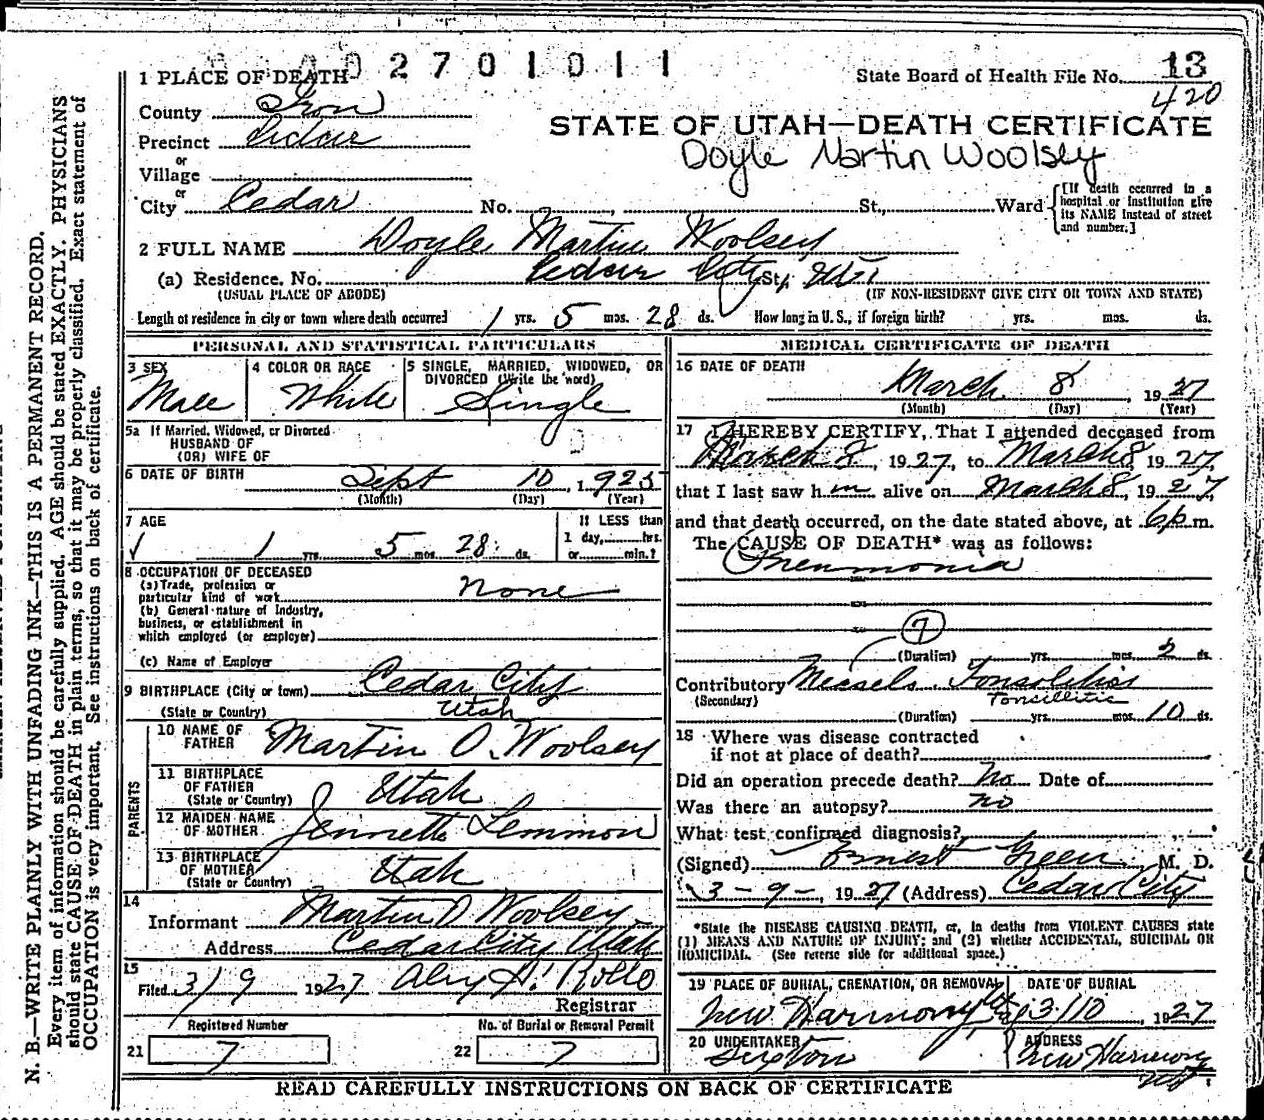 2 7 0 1 0 1 1
1 PLACE OF DEATH
State Board of Health File No. 13
420
County Iron
STATE OF UTAH—DEATH CERTIFICATE
Precinct Cedar
Doyle Martin Woolsey
or
Village
or
City Cedar No. , St., Ward
[If death occurred in a hospital or institution give its NAME instead of street and number.]
2 FULL NAME Doyle Martin Woolsey
(a) Residence. No. Cedar City St.,
(USUAL PLACE OF ABODE) (IF NON-RESIDENT GIVE CITY OR TOWN AND STATE)
Length of residence in city or town where death occurred 1 yrs. 5 mos. 28 ds. How long in U. S., if foreign birth? yrs. mos. ds.
PERSONAL AND STATISTICAL PARTICULARS
3 SEX
Male
4 COLOR OR RACE
White
5 SINGLE, MARRIED, WIDOWED, OR DIVORCED (Write the word)
Single
5a If Married, Widowed, or Divorced
HUSBAND OF
(OR) WIFE OF
6 DATE OF BIRTH Sept 10, 1925
(Month) (Day) (Year)
7 AGE
1 yrs. 5 mos. 28 ds.
If LESS than
1 day, hrs.
or min.?
8 OCCUPATION OF DECEASED
(a) Trade, profession or
particular kind of work None
(b) General nature of Industry,
business, or establishment in
which employed (or employer)
(c) Name of Employer
9 BIRTHPLACE (City or town) Cedar City
(State or Country) Utah
PARENTS
10 NAME OF FATHER Martin O. Woolsey
11 BIRTHPLACE OF FATHER Utah
(State or Country)
12 MAIDEN NAME OF MOTHER Jennette Lemmon
13 BIRTHPLACE OF MOTHER Utah
(State or Country)
14
Informant Martin O Woolsey
Address Cedar City Utah
15
Filed 3/9 1927
Registrar
Registered Number No. of Burial or Removal Permit
21 7 22 7
MEDICAL CERTIFICATE OF DEATH
16 DATE OF DEATH
March 8, 1927
(Month) (Day) (Year)
17 I HEREBY CERTIFY, That I attended deceased from
March 8, 1927, to March 8 1927,
that I last saw h im alive on March 8, 1927,
and that death occurred, on the date stated above, at 6 p m.
The CAUSE OF DEATH* was as follows:
Pneumonia
7
(Duration) yrs. mos. 2 ds.
Contributory Measels Tonsolitis
(Secondary) Tonsillitis
(Duration) yrs. mos. 10 ds.
18 Where was disease contracted
if not at place of death?
Did an operation precede death? No Date of
Was there an autopsy? no
What test confirmed diagnosis?
(Signed) Ernest Green M. D.
3-9-, 1927 (Address) Cedar City
*State the DISEASE CAUSING DEATH, or, in deaths from VIOLENT CAUSES state
(1) MEANS AND NATURE OF INJURY; and (2) whether ACCIDENTAL, SUICIDAL OR
HOMICIDAL. (See reverse side for additional space.)
19 PLACE OF BURIAL, CREMATION, OR REMOVAL DATE OF BURIAL
New Harmony 3/10, 1927
20 UNDERTAKER ADDRESS
Sexton New Harmony
READ CAREFULLY INSTRUCTIONS ON BACK OF CERTIFICATE
N. B.—WRITE PLAINLY WITH UNFADING INK—THIS IS A PERMANENT RECORD.
Every item of information should be carefully supplied. AGE should be stated EXACTLY. PHYSICIANS
should state CAUSE OF DEATH in plain terms, so that it may be properly classified. Exact statement of
OCCUPATION is very important. See instructions on back of certificate.